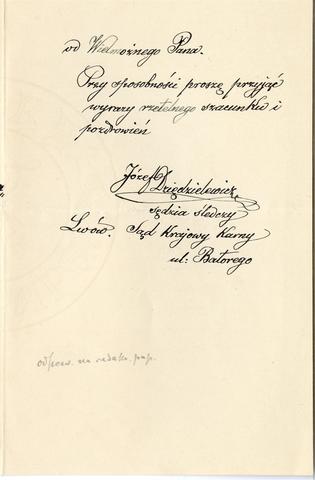 od Wielmożnego Pana.
Przy sposobności proszę przyjąć
wyrazy rzetelnego szacunku i
pozdrowień
Józef Dzię­dzielewicz
sędzia śledczy
Lwów. Sąd Krajowy Karny
ul: Batorego